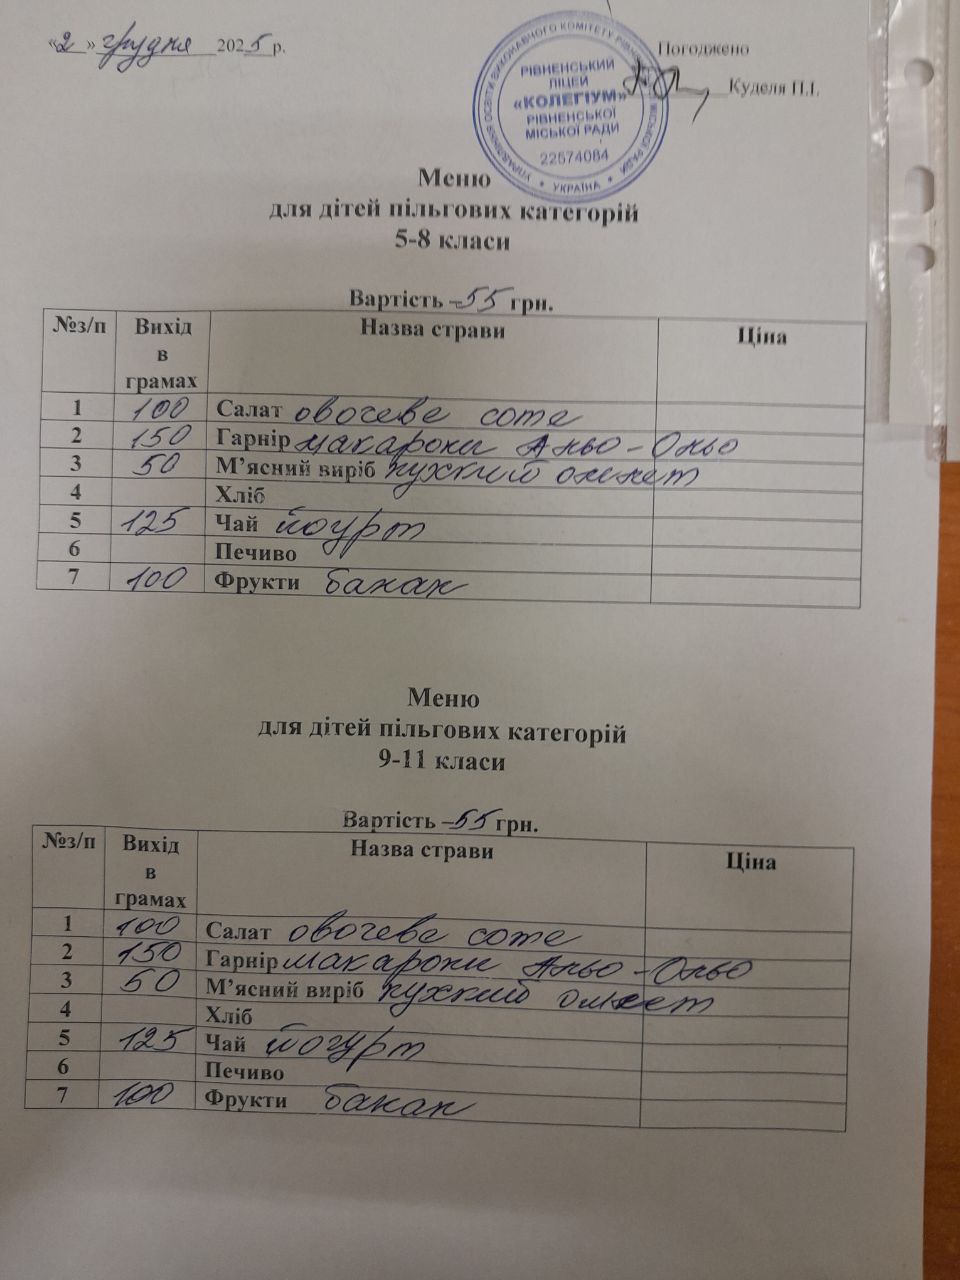 «2» грудня 2025 р.
Погоджено
Куделя П.І.
УПРАВЛІННЯ ОСВІТИ ВИКОНАВЧОГО КОМІТЕТУ РІВНЕНСЬКОЇ МІСЬКОЇ РАДИ * УКРАЇНА *
РІВНЕНСЬКИЙ
ЛІЦЕЙ
«КОЛЕГІУМ»
РІВНЕНСЬКОЇ
МІСЬКОЇ РАДИ
22574084
Меню
для дітей пільгових категорій
5-8 класи
Вартість – 55 грн.
№з/п Вихід в грамах Назва страви Ціна
1 100 Салат овочеве соте
2 150 Гарнір макарони Альо-Ольо
3 50 М’ясний виріб пухкий омлет
4 Хліб
5 125 Чай йогурт
6 Печиво
7 100 Фрукти банан
Меню
для дітей пільгових категорій
9-11 класи
Вартість – 55 грн.
№з/п Вихід в грамах Назва страви Ціна
1 100 Салат овочеве соте
2 150 Гарнір макарони Альо-Ольо
3 50 М’ясний виріб пухкий омлет
4 Хліб
5 125 Чай йогурт
6 Печиво
7 100 Фрукти банан